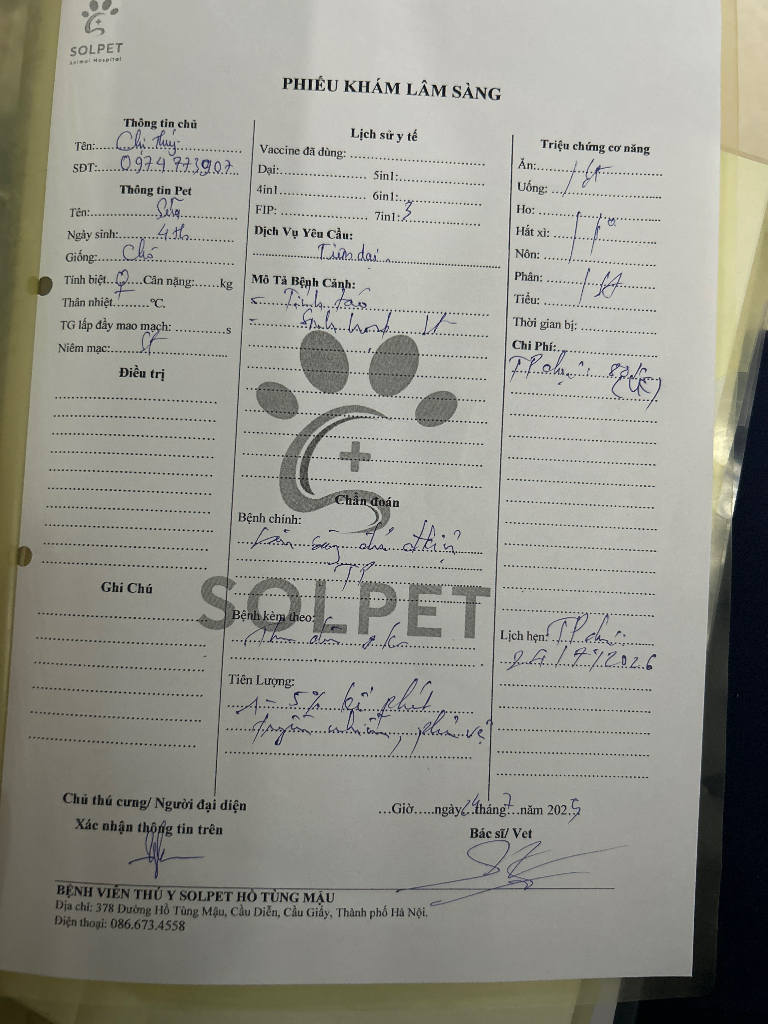 SOLPET
Animal Hospital
PHIẾU KHÁM LÂM SÀNG
Thông tin chủ
Tên: Chị Thúy
SĐT: 0974.773907
Thông tin Pet
Tên: Sữa
Ngày sinh: 4 th
Giống: Chó
Tính biệt ♀ Cân nặng: kg
Thân nhiệt °C.
TG lấp đầy mao mạch: s
Niêm mạc:
Điều trị
Ghi Chú
Lịch sử y tế
Vaccine đã dùng:
Dại: 5in1:
4in1 6in1:
FIP: 7in1: 3
Dịch Vụ Yêu Cầu:
Tiêm dại
Mô Tả Bệnh Cảnh:
- Tỉnh táo
Chẩn đoán
Bệnh chính:
TP
Bệnh kèm theo:
Tiên Lượng:
1 - 5%
truyền nhiễm, phản vệ
SOLPET
Triệu chứng cơ năng
Ăn:
Uống:
Ho:
Hắt xì:
Nôn:
Phân:
Tiểu:
Thời gian bị:
Chi Phí:
Lịch hẹn:
Chủ thú cưng/ Người đại diện
Xác nhận thông tin trên
...Giờ.....ngày 24 tháng 7 năm 2025
Bác sĩ/ Vet
BỆNH VIỆN THÚ Y SOLPET HỒ TÙNG MẬU
Địa chỉ: 378 Đường Hồ Tùng Mậu, Cầu Diễn, Cầu Giấy, Thành phố Hà Nội.
Điện thoại: 086.673.4558